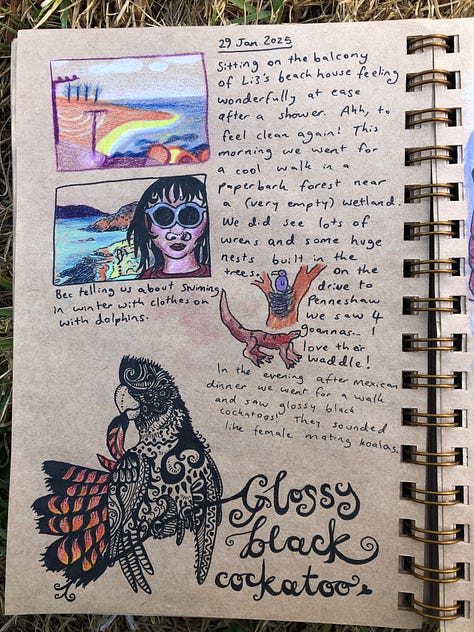 29 Jan. 2025
Sitting on the balcony
of Liz's beach house feeling
wonderfully at ease
after a shower. Ahh, to
feel clean again! This
morning we went for
a cool walk in a
paperbark forest near
a (very empty) wetland.
We did see lots of
wrens and some huge
nests built in the
trees. On the
drive to
Penneshaw
we saw 4
goannas... I
love their
waddle!
Bec telling us about swimming
in winter with clothes on
with dolphins.
In the evening after mexican
dinner we went for a walk
and saw glossy black
cockatoos! They sounded
like female mating koalas.
Glossy
black
cockatoo